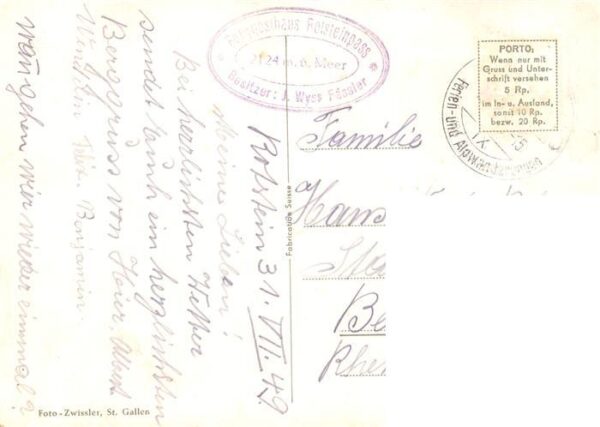 Berggasthaus Rotsteinpass
2124 m. ü. Meer
Besitzer: J. Wyss Fässler
PORTO:
Wenn nur mit
Gruss und Unter-
schrift versehen
5 Rp.
im In- u. Ausland,
sonst 10 Rp.
bezw. 20 Rp.
Ferien- und
Rotstein 31. VII. 49
Meine Lieben!
Bei herrlichstem Wetter
sendet Euch ein herzlichsten
Berggruss von Albert
Benjamin.
wann gehen wir wieder einmal?
Familie
Hans
Be
Rhe
Fabrication Suisse
Foto-Zwissler, St. Gallen